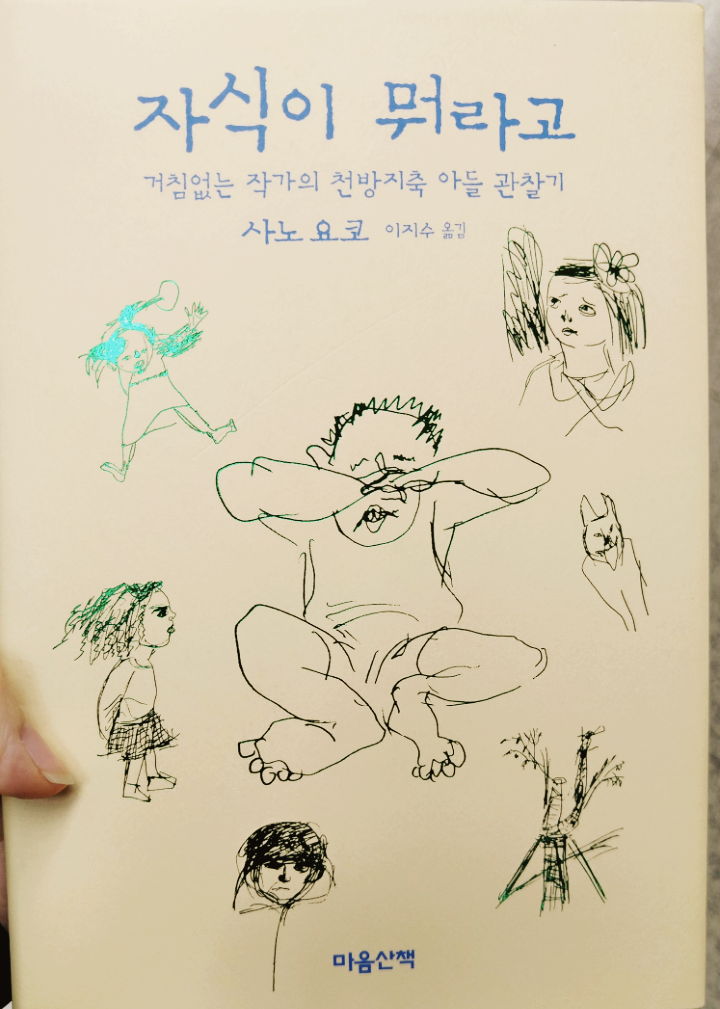 자식이 뭐라고
거침없는 작가의 천방지축 아들 관찰기
사노 요코 이지수 옮김
마음산책